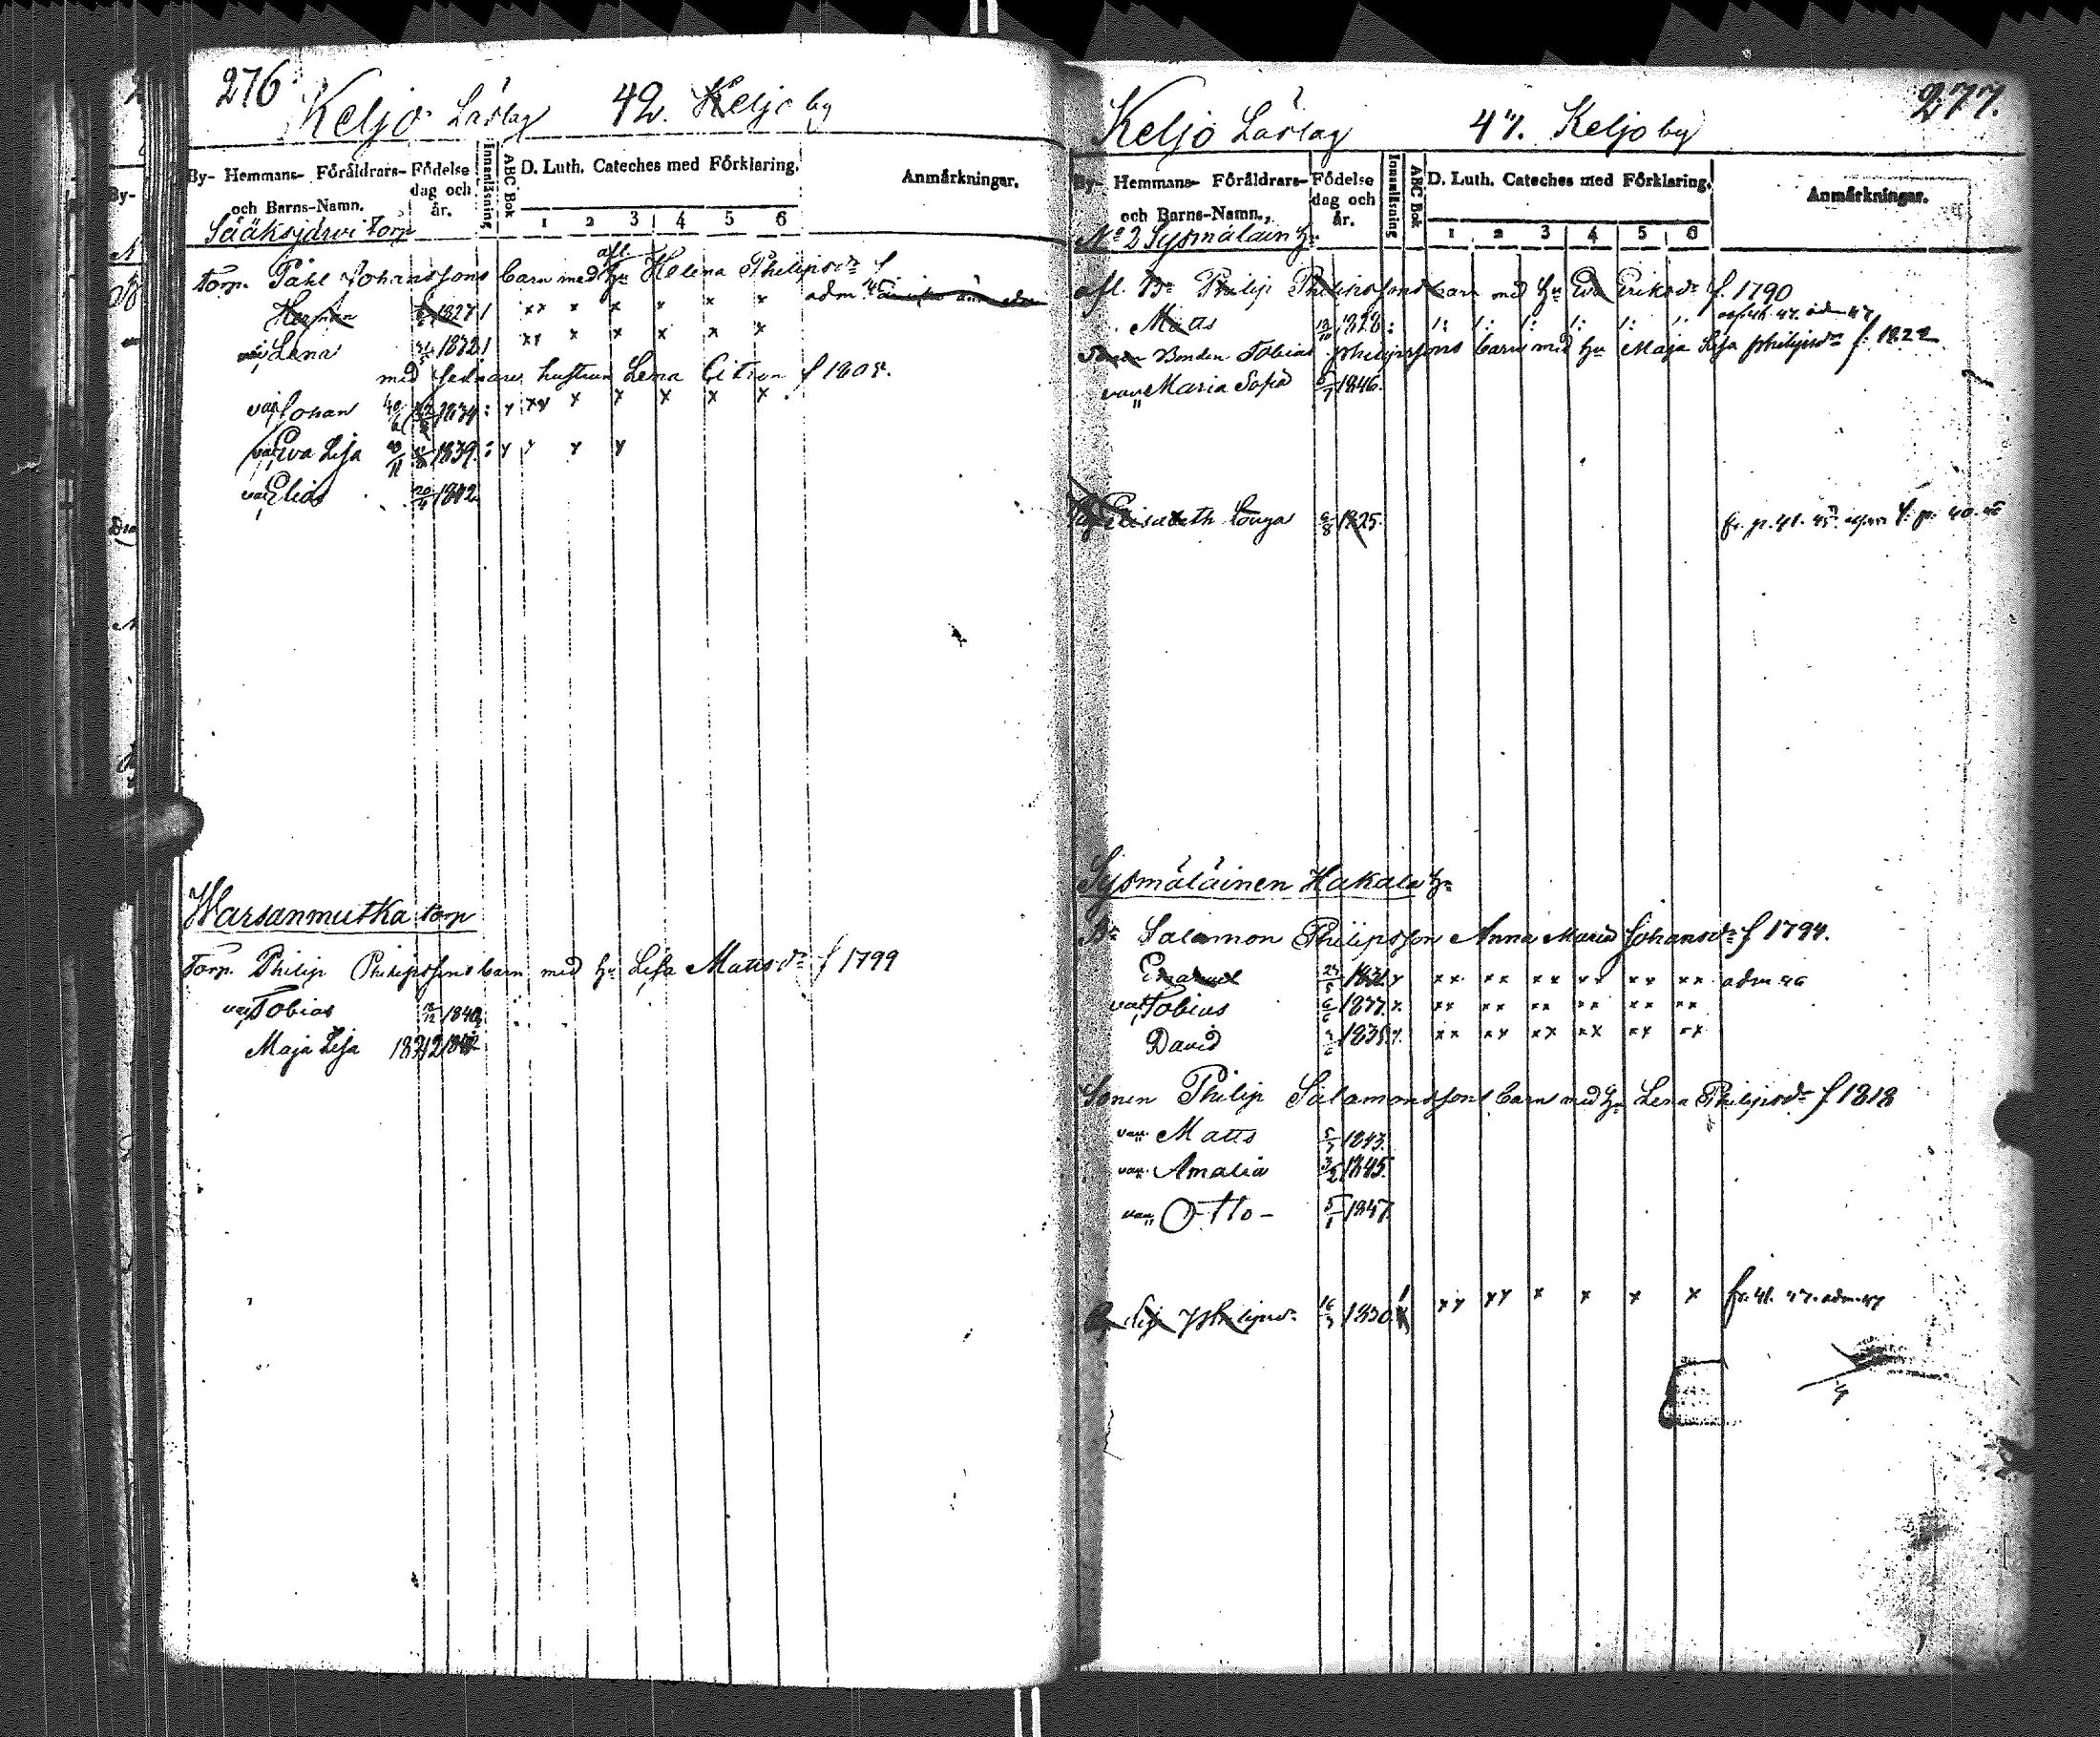 276
Keljo Läslag 42. Keljo by
By- Hemmans- Föräldrars- och Barns-Namn.
Födelse dag och år.
Innanläsning
ABC Bok
D. Luth. Cateches med Förklaring.
1 2 3 4 5 6
Anmärkningar.
Sääksjärvi Torp
Torp. Påhl Johanssons barn med afl. hu Helena Philipsdr f
Herman 1827 xx x x x x x adm 45
Lena 1832 xx x x x x x
med sednare hustrun Lena Citron f 1805.
vac Johan 1834 x xx x x x x x
vac Eva Lisa 1839 x x x x
vac Elias 20/4 1842
Warsanmutka torp
Torp. Philip Philipssons barn med hu Lisa Mattsdr f 1799
vac Tobias 1840
Maja Lisa
277.
Keljo Läslag 47. Keljo by
By- Hemmans- Föräldrars- och Barns-Namn.
Födelse dag och år.
Innanläsning
ABC Bok
D. Luth. Cateches med Förklaring.
1 2 3 4 5 6
Anmärkningar.
No 2 Sysmäläin h:
afl. Br Philip Philipssons barn med hu Eva Eriksdr f. 1790
Matts 1828 adm 47
Bonden Tobias philipssons barn med hu Maja Lisa philipsdr f. 1822
vac Maria Sofia 1846.
Elisabeth Longa 6/8 1825. fr. p. 41. 45.
Sysmäläinen Hakala h:
Br Salamon Philipsson Anna Maria Johansdr f 1794.
Emanuel x xx xx xx xx xx xx adm 46
vac Tobias 6/6 x xx xx xx xx xx xx
David x xx xx xx xx xx xx
Sonen Philip Salamonssons barn med hu Lena Philipsdr f 1818
vac Matts 1843.
vac Amalia 1845.
vac Otto - 1847
philipsdr 1830 xx xx x x x x fr. 41. 47. adm. 47